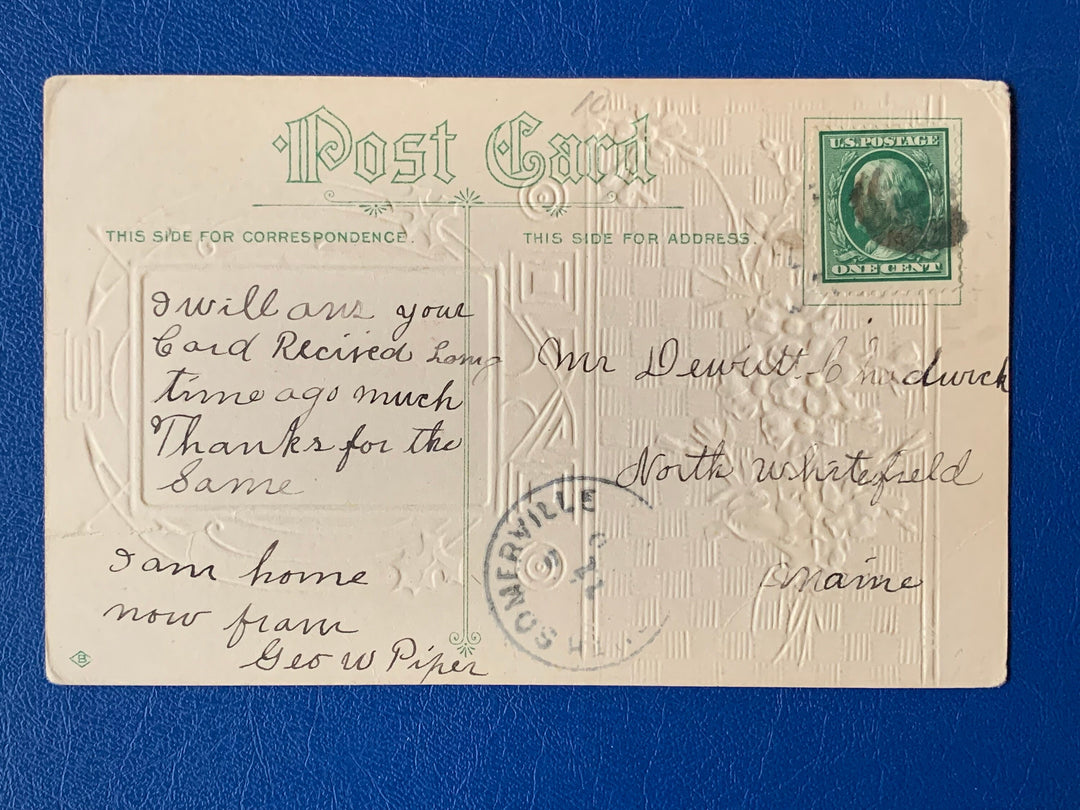 10
Post Card
THIS SIDE FOR CORRESPONDENCE.
THIS SIDE FOR ADDRESS.
U.S. POSTAGE
ONE CENT
I will ans your
Card Recived Long
time ago much
Thanks for the
Same
I am home
now from
Geo W Piper
Mr Dewitt Chadwick
North Whitefield
Maine
SOMERVILLE
B